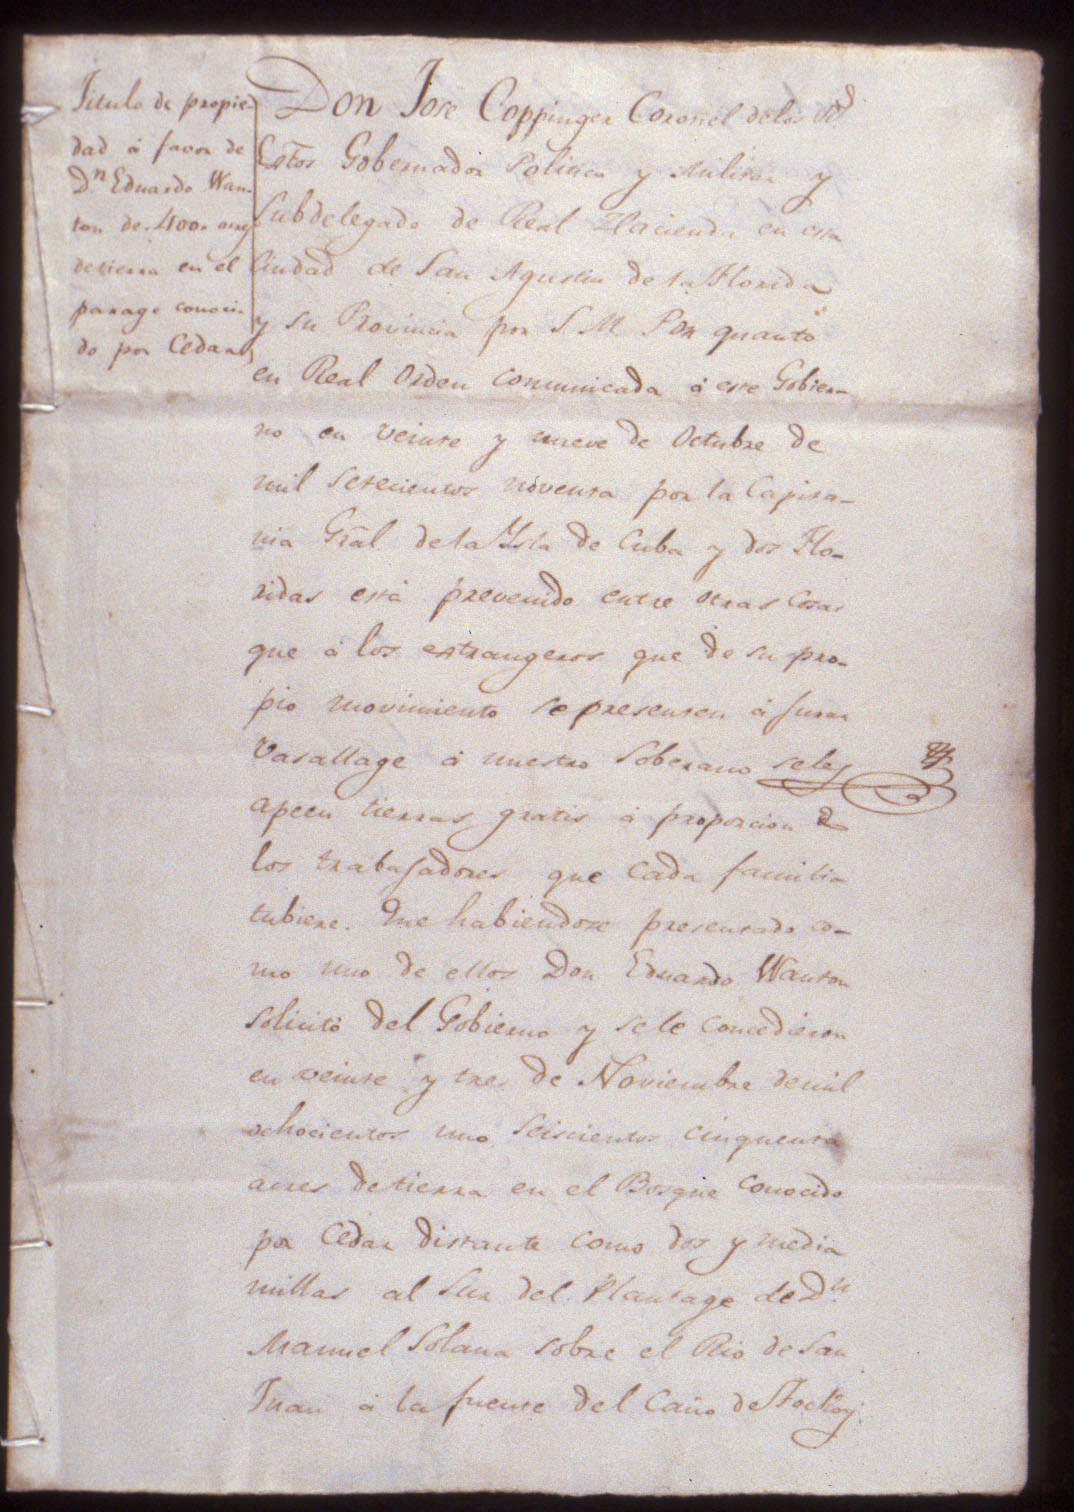 Titulo de propie-
dad á favor de
Dn Eduardo Wan-
ton de 400 acrs
de tierra en el
parage conoci-
do por Cedar
Don Jose Coppinger Coronel de los Rs
Extos Gobernador Politico y Militar y
Subdelegado de Real Hacienda en esta
Ciudad de San Agustin de la Florida
y su Provincia por S. M. Por quanto
en Real Orden comunicada á este Gobier-
no en veinte y nueve de Octubre de
mil setecientos noventa por la Capita-
nia Gral de la Ysla de Cuba y dos Flo-
ridas está prevenido entre otras cosas
que á los extrangeros que de su pro-
pio movimiento se presenten á jurar
Vasallage á nuestro Soberano se les
apeen tierras gratis á proporcion de
los trabajadores que cada familia
tubiere. Que habiendose presentado co-
mo uno de ellos Don Eduardo Wanton
solicitó del Gobierno y se le concedieron
en veinte y tres de Noviembre de mil
ochocientos uno, seiscientos cinquenta
acres de tierra en el Bosque conocido
por Cedar distante como dos y media
millas al Sur del Plantage de Dn
Manuel Solana sobre el Rio de San
Juan á la fuente del Caño de